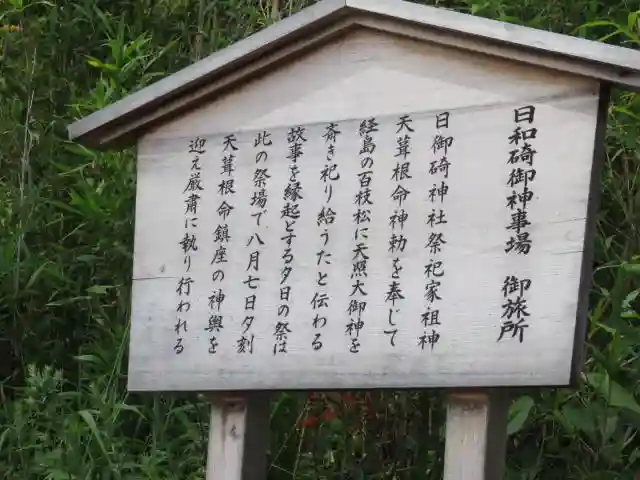 日和碕御神事場 御旅所
日御碕神社祭祀家祖神
天葺根命神勅を奉じて
経島の百枝松に天照大御神を
斎き祀り給うたと伝わる
故事を縁起とする夕日の祭は
此の祭場で八月七日夕刻
天葺根命鎮座の神輿を
迎え厳粛に執り行われる